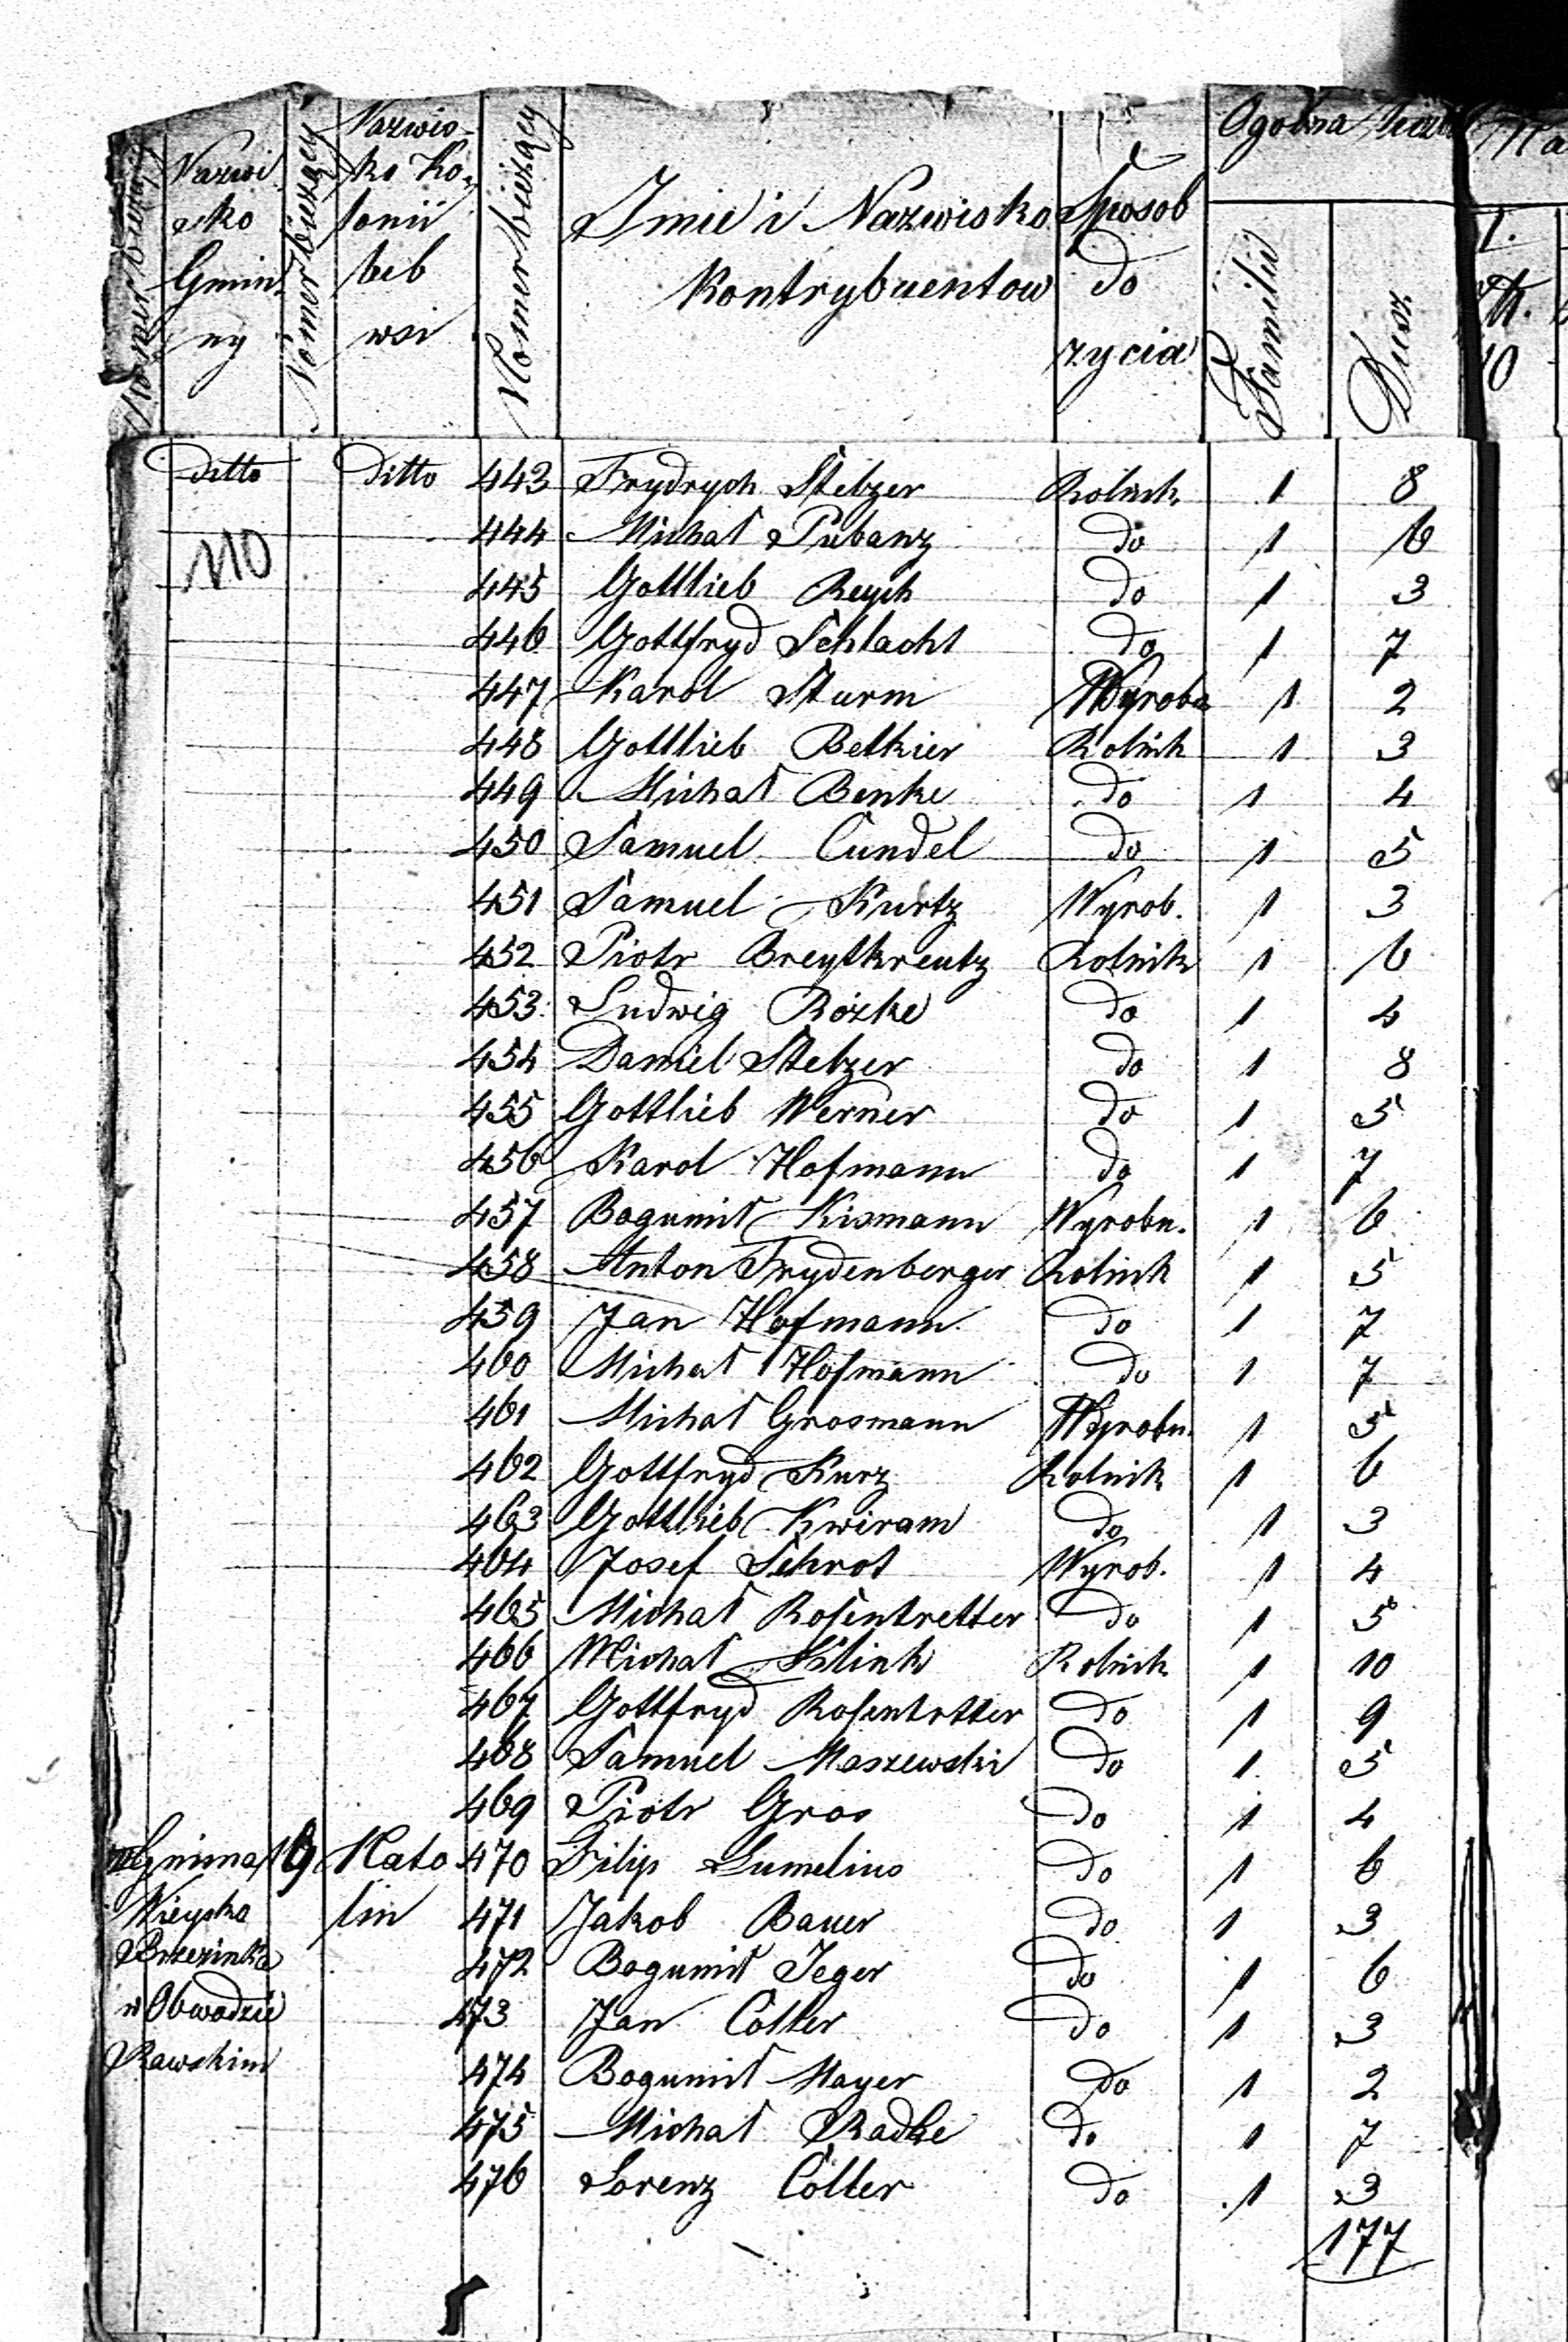 Nomer bieżący
Nazwisko Gminny
Nomer bieżący
Nazwisko Kolonii lub wsi
Nomer bieżący
Imie i Nazwisko Kontrybuentow
Sposob do zycia
Ogólna
Familiů
Dusz
ditto ditto 443 Frydrych Stelzer Rolnik 1 8
110 444 Michał Pubanz do 1 6
445 Gottlieb Reych do 1 3
446 Gottfryd Schlacht do 1 7
447 Karol Sturm Wyrobn 1 2
448 Gottlieb Betkier Rolnik 1 3
449 Michał Benke do 1 4
450 Samuel Cundel do 1 5
451 Samuel Kurtz Wyrob. 1 3
452 Piotr Breytkreutz Rolnik 1 6
453 Ludwig Rözke do 1 4
454 Daniel Stelzer do 1 8
455 Gottlieb Werner do 1 5
456 Karol Hofmann do 1 7
457 Bogumił Kismann Wyrobn. 1 6
458 Anton Frydenberger Rolnik 1 5
459 Jan Hofmann do 1 7
460 Michał Hofmann do 1 7
461 Michał Grosmann Wyrobn. 1 5
462 Gottfryd Kurz Rolnik 1 6
463 Gottlieb Kwiram do 1 3
464 Josef Schrot Wyrob. 1 4
465 Michał Rosentretter do 1 5
466 Michał Klink Rolnik 1 10
467 Gottfryd Rosentretter do 1 9
468 Samuel Maszewski do 1 5
469 Piotr Gros do 1 4
Gmina 19 Kato 470 Filip Lumelius do 1 6
Wieyska lin 471 Jakob Bauer do 1 3
Brzezinka 472 Bogumił Jeger do 1 6
w Obwodzie 473 Jan Cöller do 1 3
Rawskim 474 Bogumił Mayer do 1 2
475 Michał Radke do 1 7
476 Lorenz Cöller do 1 3
177